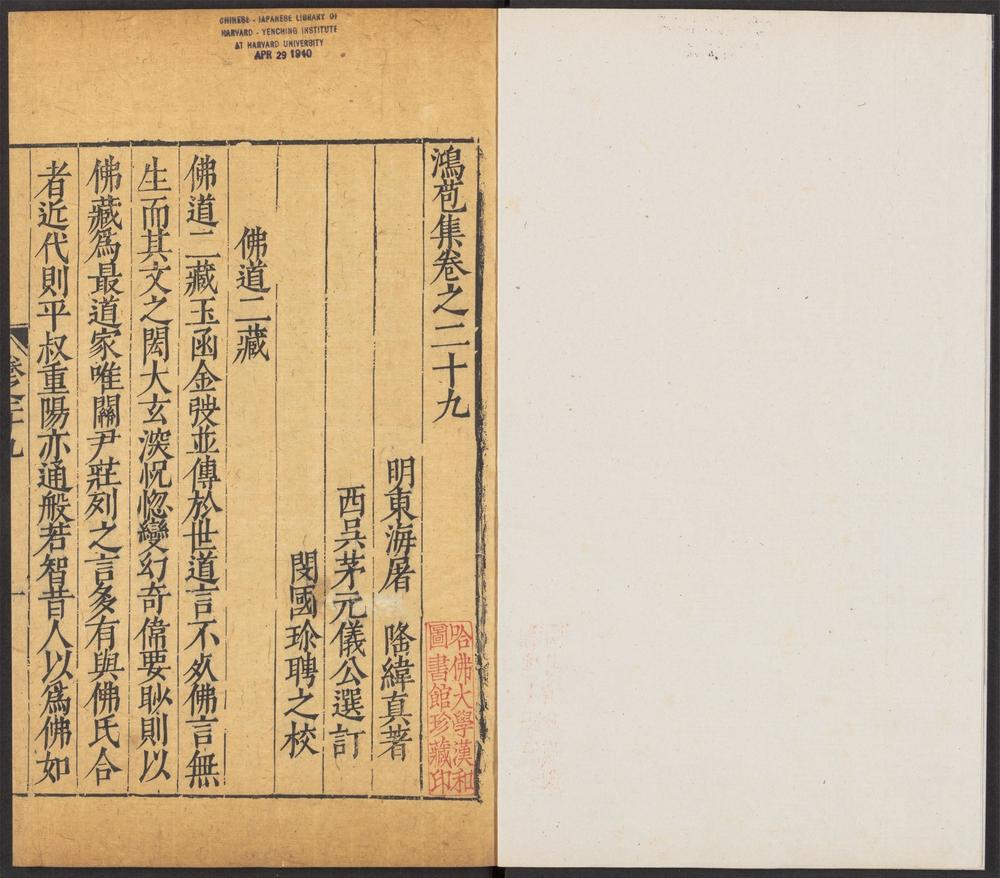 CHINESE - JAPANESE LIBRARY OF
HARVARD - YENCHING INSTITUTE
AT HARVARD UNIVERSITY
APR 29 1940
鴻苞集卷之二十九
明東海屠 隆緯真著
西吳茅元儀公選訂
閔國㺳聘之校
佛道二藏
佛道二藏玉函金弢並傳於世道言不死佛言無
生而其文之閎大玄深怳惚變幻奇偉要眇則以
佛藏爲最道家唯關尹莊列之言多有與佛氏合
者近代則平叔重陽亦通般若智昔人以爲佛如
卷之二十九
一
哈佛大學漢和
圖書館珍藏印